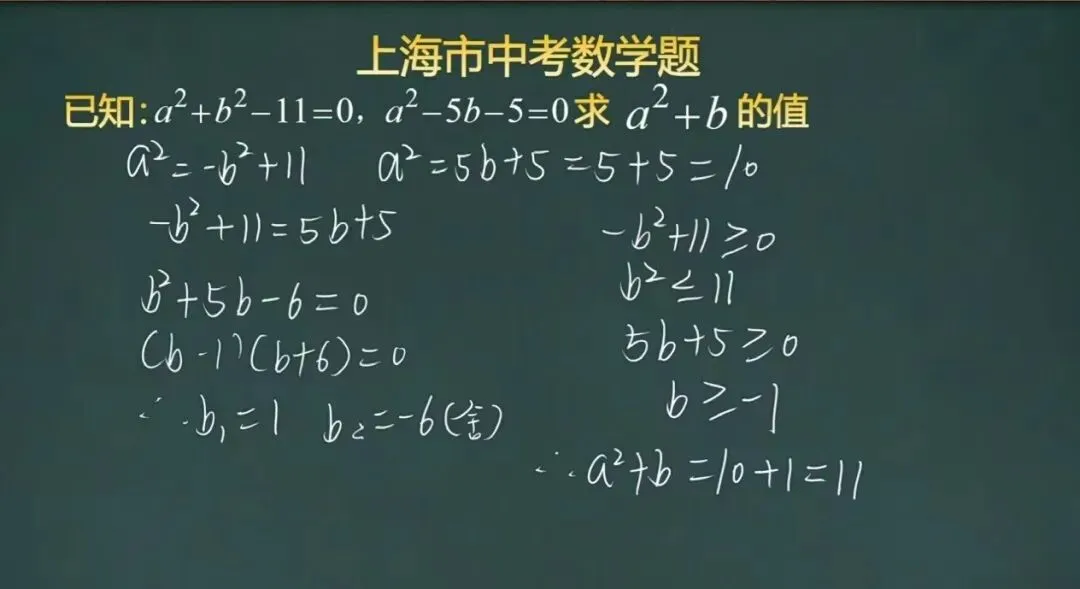 上海市中考数学题
已知:a²+b²-11=0, a²-5b-5=0求 a²+b 的值
a²=-b²+11 a²=5b+5=5+5=10
-b²+11=5b+5
b²+5b-6=0
(b-1)(b+6)=0
∴ b₁=1 b₂=-6(舍)
-b²+11≥0
b²≤11
5b+5≥0
b≥-1
∴ a²+b=10+1=11